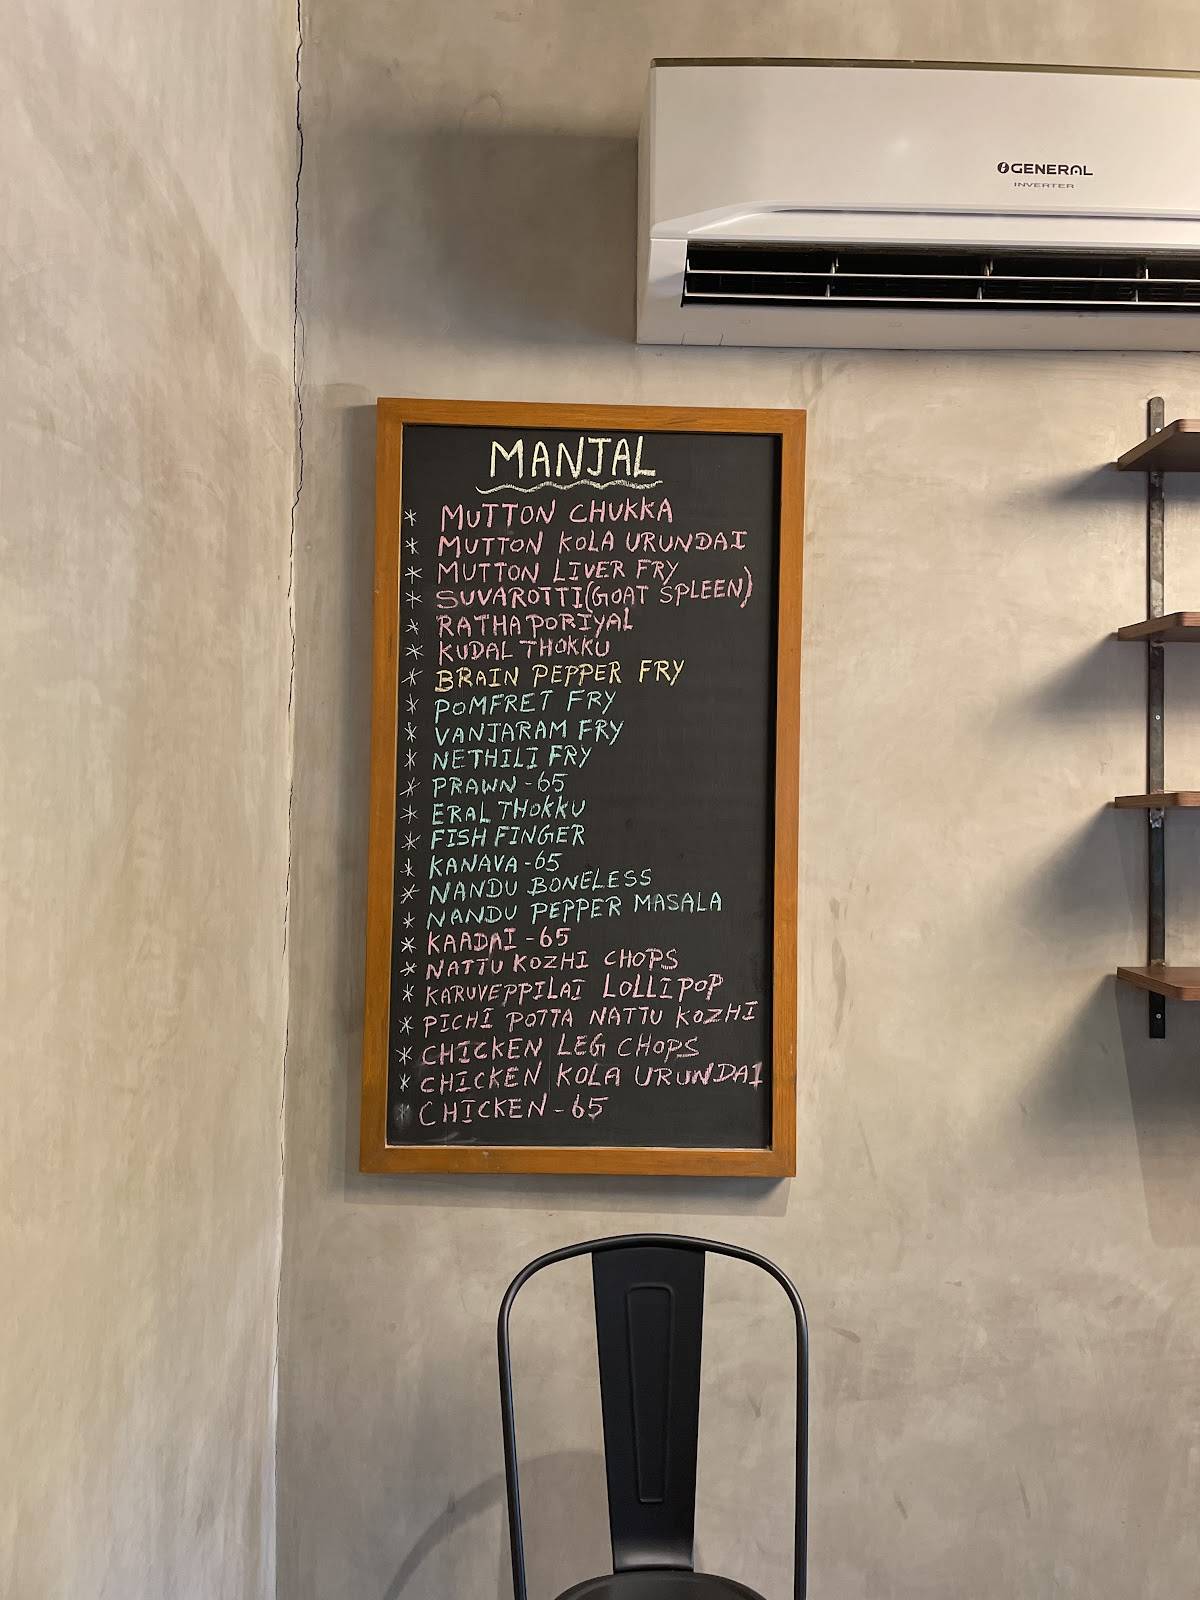 GENERAL
INVERTER
MANJAL
* MUTTON CHUKKA
* MUTTON KOLA URUNDAI
* MUTTON LIVER FRY
* SUVAROTTI(GOAT SPLEEN)
* RATHA PORIYAL
* KUDAL THOKKU
* BRAIN PEPPER FRY
* POMFRET FRY
* VANJARAM FRY
* NETHILI FRY
* PRAWN - 65
* ERAL THOKKU
* FISH FINGER
* KANAVA - 65
* NANDU BONELESS
* NANDU PEPPER MASALA
* KAADAI - 65
* NATTU KOZHI CHOPS
* KARUVEPPILAI LOLLIPOP
* PICHI POTTA NATTU KOZHI
* CHICKEN LEG CHOPS
* CHICKEN KOLA URUNDAI
* CHICKEN - 65